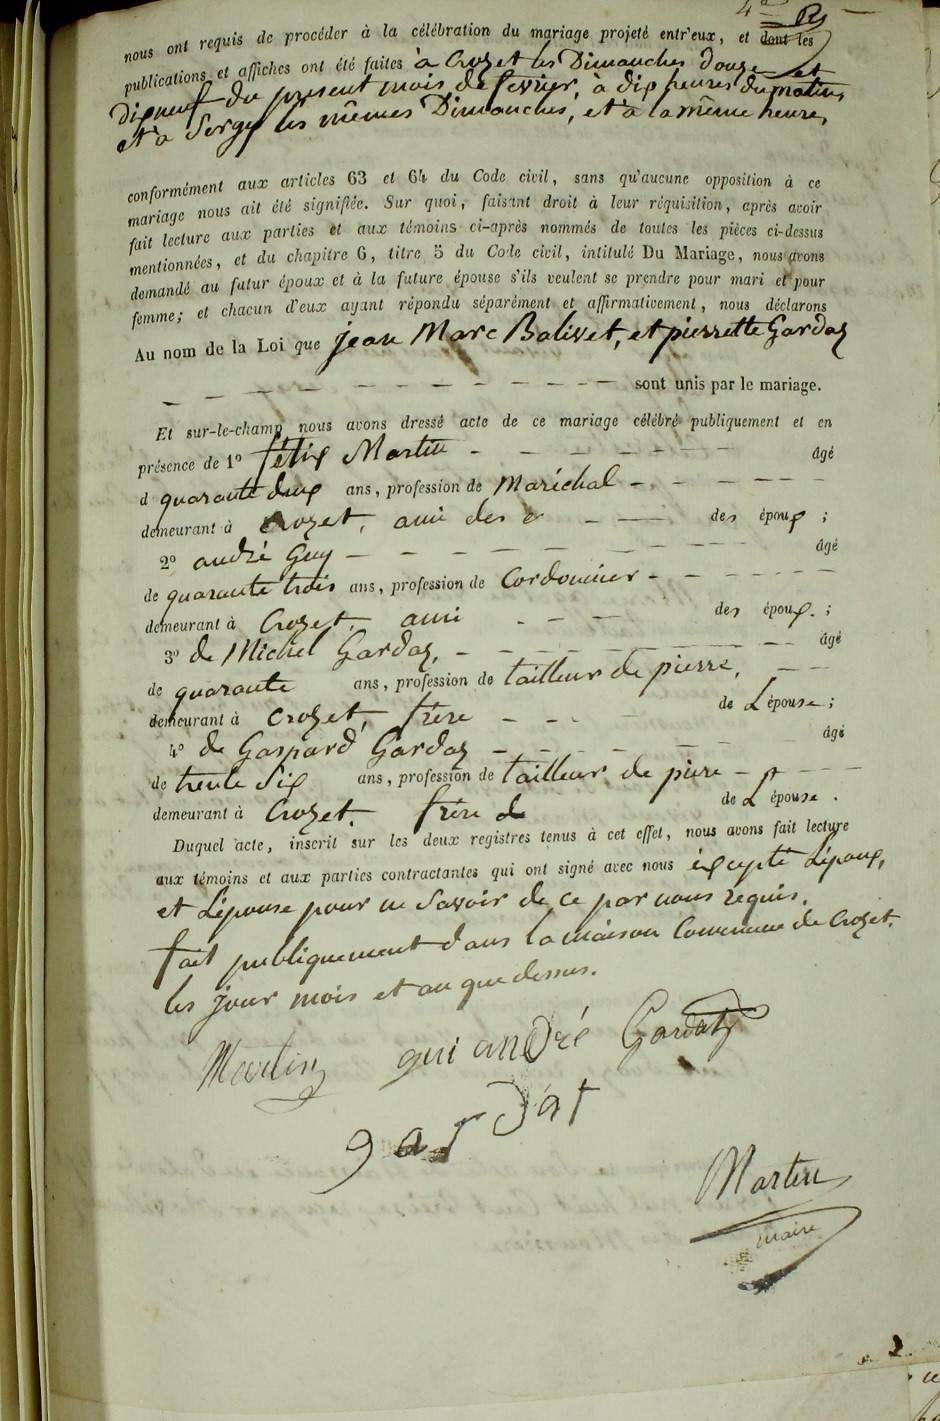 4e
nous ont requis de procéder à la célébration du mariage projeté entr'eux, et dont les
publications et affiches ont été faites à Crozet les Dimanches douze et
dixneuf du present mois de fevrier, à dix heures du matin,
et à Sergy les mêmes Dimanches, et à la même heure,
conformément aux articles 63 et 64 du Code civil, sans qu'aucune opposition à ce
mariage nous ait été signifiée. Sur quoi, faisant droit à leur réquisition, après avoir
fait lecture aux parties et aux témoins ci-après nommés de toutes les pièces ci-dessus
mentionnées, et du chapitre 6, titre 5 du Code civil, intitulé Du Mariage, nous avons
demandé au futur époux et à la future épouse s'ils veulent se prendre pour mari et pour
femme; et chacun d'eux ayant répondu séparément et affirmativement, nous déclarons
Au nom de la Loi que jean Marc Balivet, et pierrette Gardaz
sont unis par le mariage.
Et sur-le-champ nous avons dressé acte de ce mariage célébré publiquement et en
présence de 1º félix Martin âgé
d quarante deux ans, profession de Maréchal
demeurant à Crozet, ami des époux ;
2º andré Guy âgé
de quarante trois ans, profession de Cordonnier
demeurant à Crozet. ami des époux. ;
3º de Michel Gardaz, âgé
de quarante ans, profession de tailleur de pierre,
demeurant à Crozet, frère de L'épouse ;
4º de Gaspard Gardaz âgé
de trente Six ans, profession de tailleur de pierre
demeurant à Crozet. frère de de L'épouse.
Duquel acte, inscrit sur les deux registres tenus à cet effet, nous avons fait lecture
aux témoins et aux parties contractantes qui ont signé avec nous éxcepté L'époux,
et L'épouse pour ne Savoir de ce par nous requis.
fait publiquement dans la maison Commune de Crozet.
les jour mois et an que dessus.
Martin gui andré Gardaz
gardat
Martin
maire